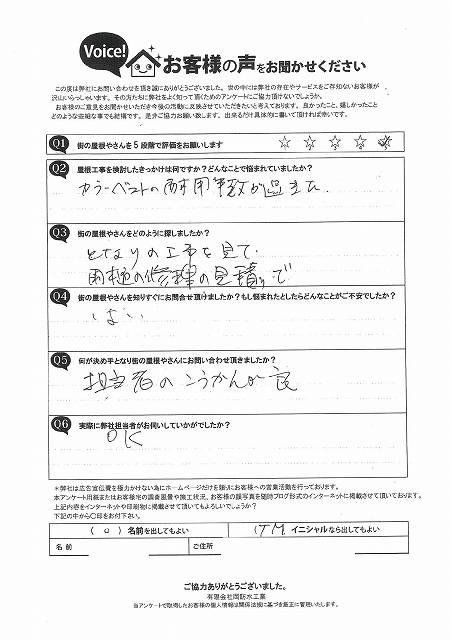 Voice!
お客様の声をお聞かせください
この度は弊社にお問い合わせを頂き誠にありがとうございます。世の中には弊社の存在やサービスをご存知ないお客様が
沢山いらっしゃいます。その方たちに弊社をよく知って頂くためのアンケートにご協力頂けないでしょうか。
お客様のご意見をお聞かせいただき今後の活動に反映させていただきたいと考えております。良かったこと、嬉しかったこと
どのような些細な事でも結構です。是非ご協力お願い致します。出来るだけ具体的に書いて頂ければ幸いです。
Q1 街の屋根やさんを5段階で評価をお願いします ☆ ☆ ☆ ☆ ☆
Q2 屋根工事を検討したきっかけは何ですか？どんなことで悩まれていましたか？
カラーベストの耐用年数が過ぎた
Q3 街の屋根やさんをどのように探しましたか？
となりの工事を見て、
雨樋の修理の見積りで
Q4 街の屋根やさんを知りすぐにお問合せ頂けましたか？もし悩まれたとしたらどんなことがご不安でしたか？
はい
Q5 何が決め手となり街の屋根やさんにお問い合わせ頂きましたか？
担当者のこうかんが良
Q6 実際に弊社担当者がお伺いしていかがでしたか？
OK
＊弊社は広告宣伝費を極力かけない為にホームページだけを頼りにお客様への営業活動を行っております。
本アンケート用紙またはお客様宅の調査風景や施工状況、お客様の顔写真を随時ブログ形式のインターネットに掲載させて頂いております。
上記内容をインターネットや印刷物に掲載させて頂いてもよろしいでしょうか？
下記の中から〇印をお付下さい。
（ o ）名前を出してもよい （ T M イニシャルなら出してもよい
名前 ご住所
ご協力ありがとうございました。
有限会社岡防水工業
当アンケートで取得したお客様の個人情報は関係法規に基づき厳正に管理いたします。